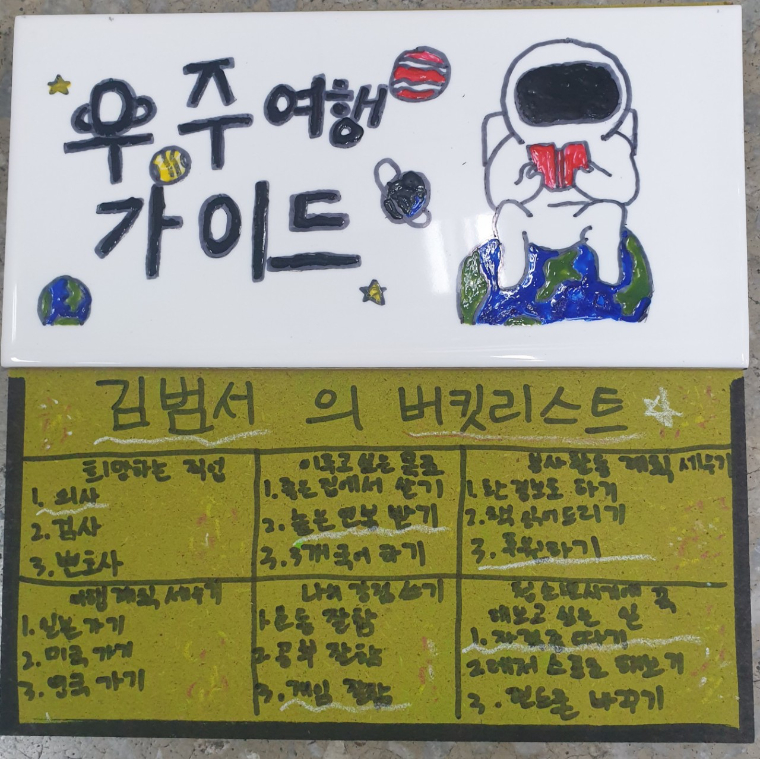 우주여행
가이드
김범서 의 버킷리스트
희망하는 직업
1. 의사
2. 검사
3. 변호사
이루고 싶은 목표
1. 좋은 집에서 살기
2. 높은 연봉 받기
3. 3개 국어 하기
봉사 활동 계획 세우기
1. 헌 경보도 하기
2. 책 읽어드리기
3.
여행 계획 세우기
1. 일본 가기
2. 미국 가기
3. 영국 가기
나의 강점 쓰기
1. 운동 잘함
2. 공부 잘함
3. 게임 잘함
청소년시기에 꼭
해보고 싶은 일
1. 자격증 따기
2. 해보기
3. 핸드폰 바꾸기